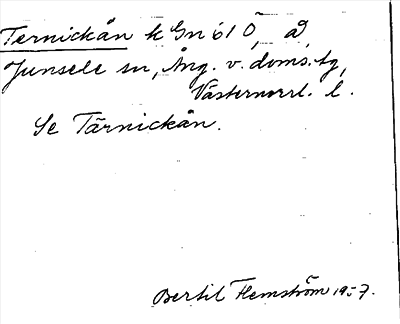 Ternickån k Gn 61 Ö, å,
Junsele sn, Ång. v. doms.tg,
Västernorrl. l.
Se Tärnickån.
Bertil Flemström 1957.